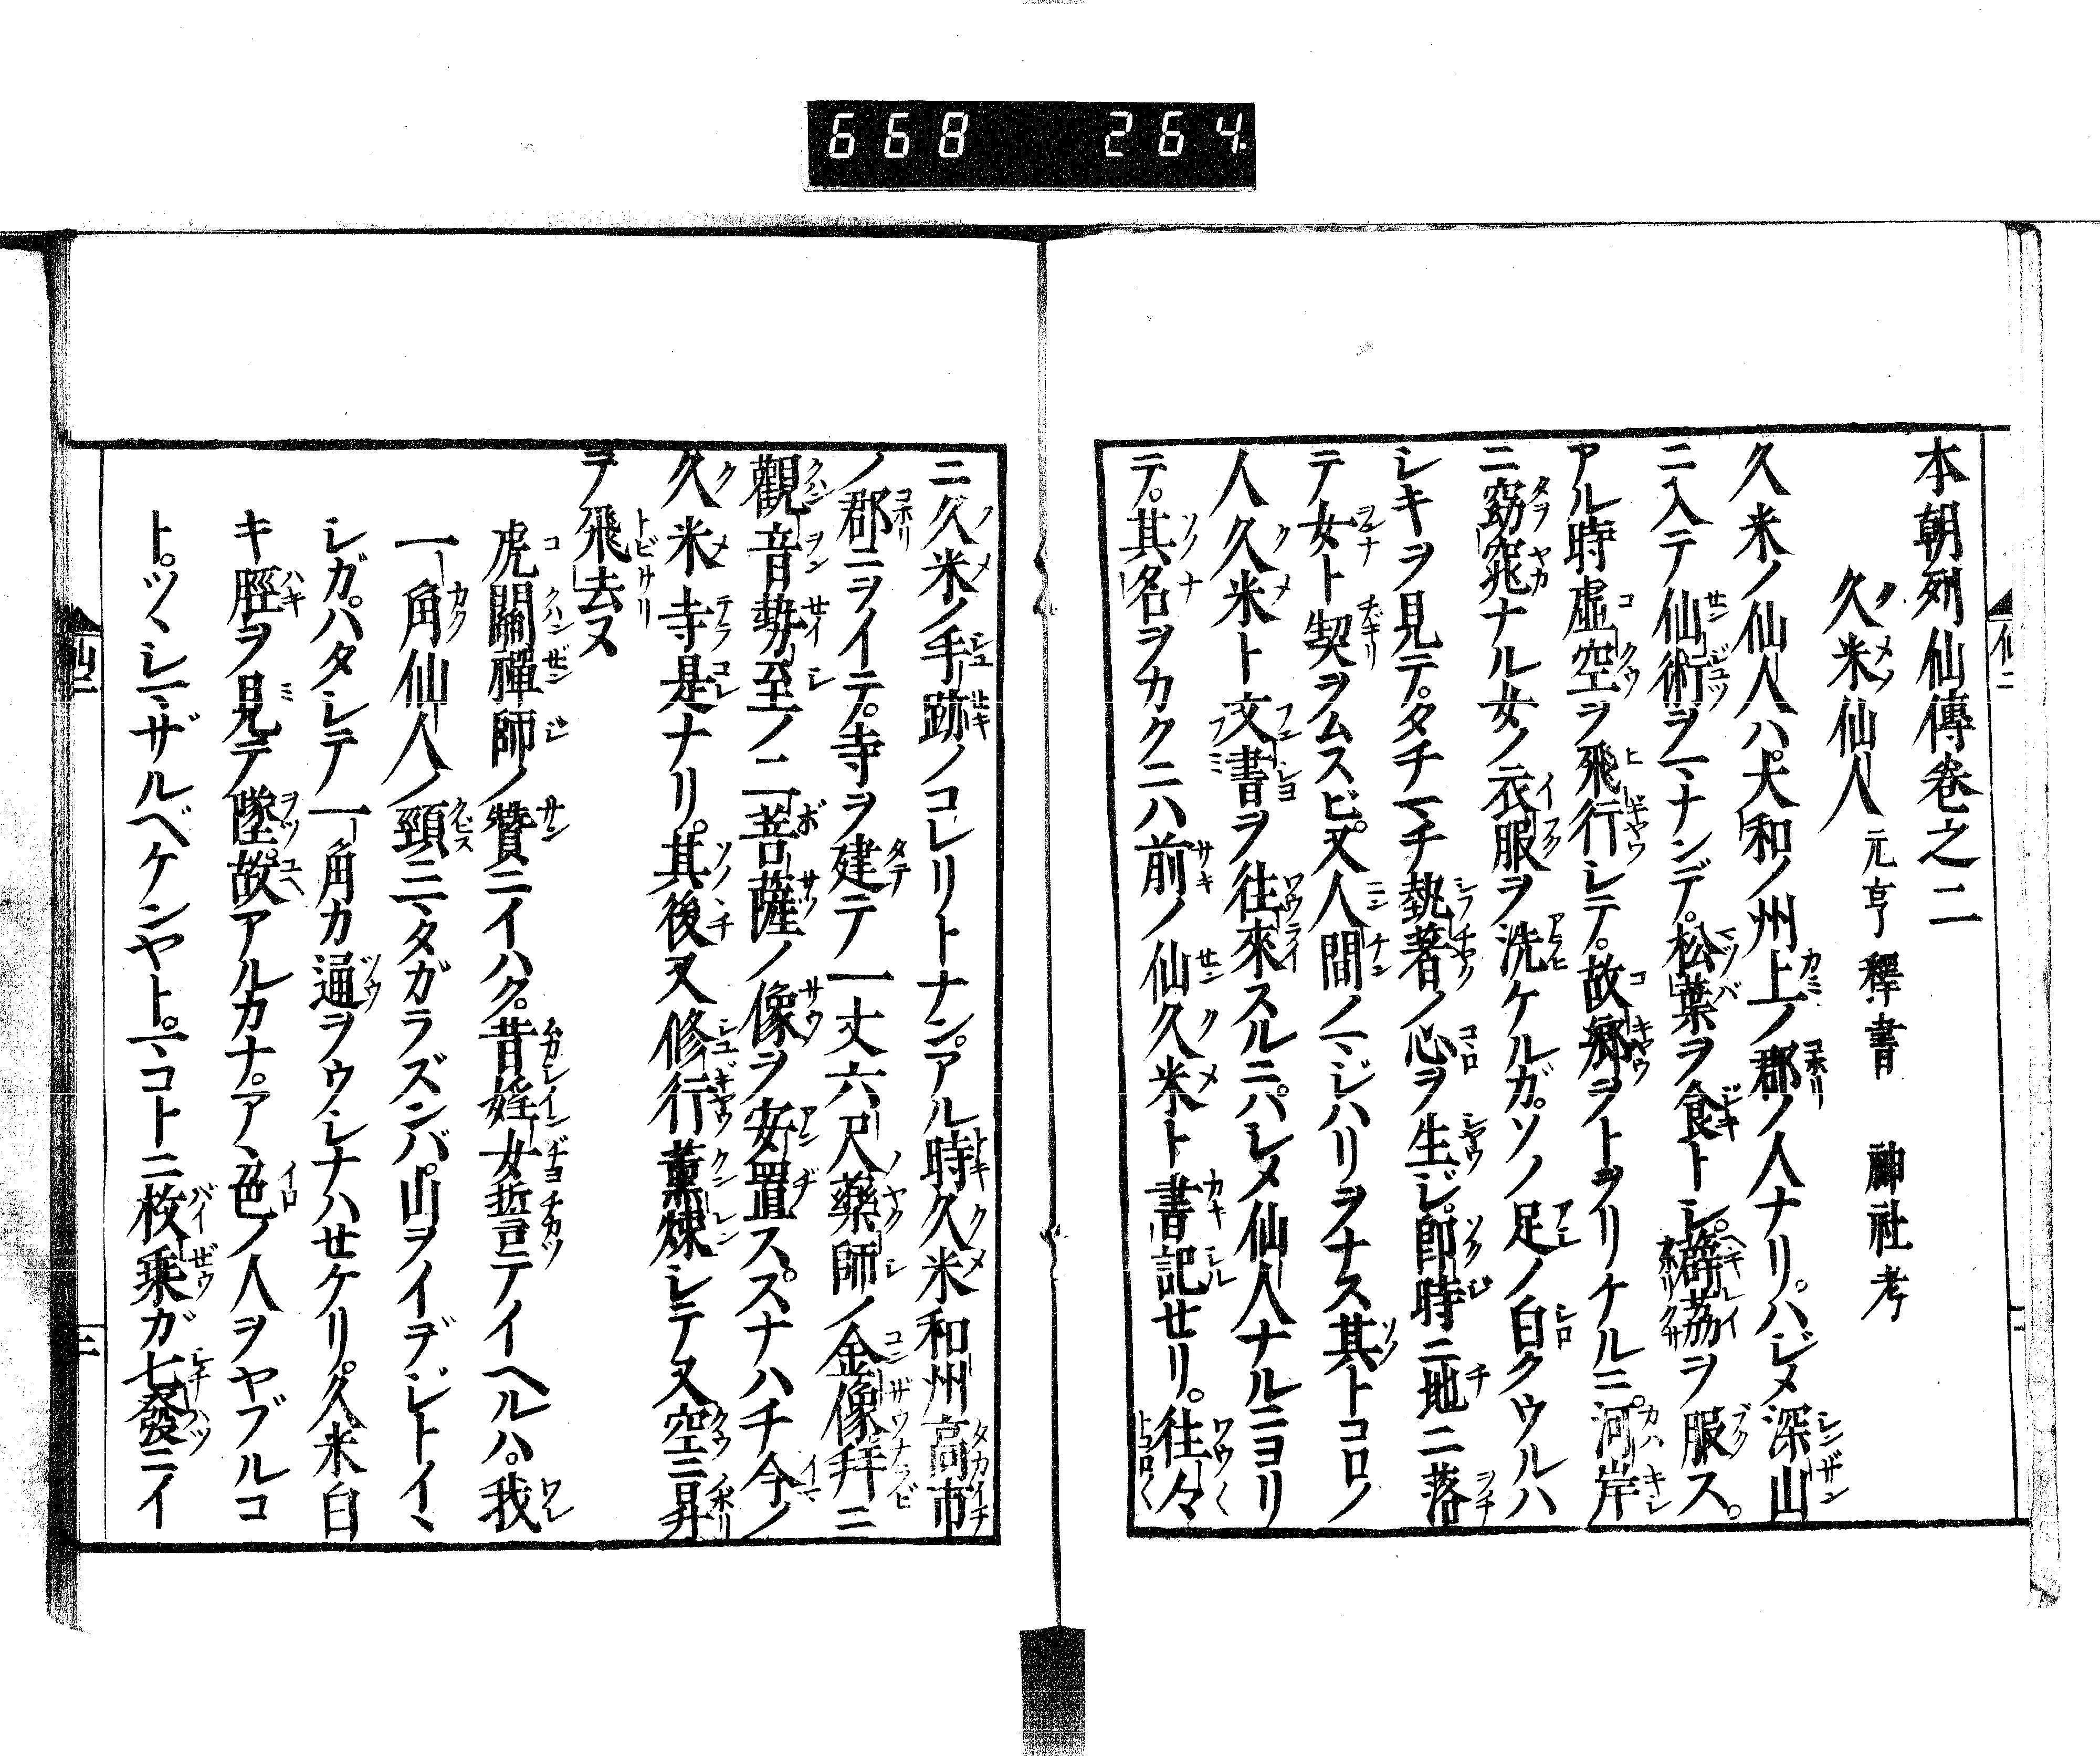 668 264
本朝列仙傳巻之二
久米仙人 元亨釋書 神社考
久米ノ仙人ハ。大和ノ州上ノ郡ノ人ナリ。ハジメ深山
ニ入テ仙術ヲマナンデ。松葉ヲ食トシ。薜茘ヲ服ス。
アル時虚空ヲ飛行シテ。故郷ヲトヲリケルニ。河岸
ニ窈窕ナル女ノ衣服ヲ洗ケルガ。ソノ足ノ白クウルハ
シキヲ見テ。タチマチ執著ノ心ヲ生ジ。即時ニ地ニ落
テ女ト契ヲムスビ。又人間ノマジハリヲナス其トコロノ
人久米ト文書ヲ往來スルニ。ハシメ仙人ナルニヨリ
テ。其名ヲカクニハ前ノ仙久米ト書記セリ。往々
ニ久米ノ手跡ノコレリトナン。アル時久米和州高市
ノ郡ニヲイテ。寺ヲ建テ一丈六尺藥師ノ金像拜ニ
觀音勢至ノ二菩薩ノ像ヲ安置ス。スナハチ今ノ
久米寺是ナリ。其後又修行薫煉シテ又空ニ昇
テ飛去ヌ
虎關禪師ノ賛ニイハク。昔婬女誓テイヘルハ。我
一角仙人ノ頸ニマタガラズンバ。山ヲイデジトイヽ
シガ。ハタシテ一角カ通ヲウシナハせケリ。久米白
キ脛ヲ見テ墜。故アルカナ。アヽ色ノ人ヲヤブルコ
ト。ツヽシマザルベケンヤト。マコトニ枚乗ガ七發ニイ